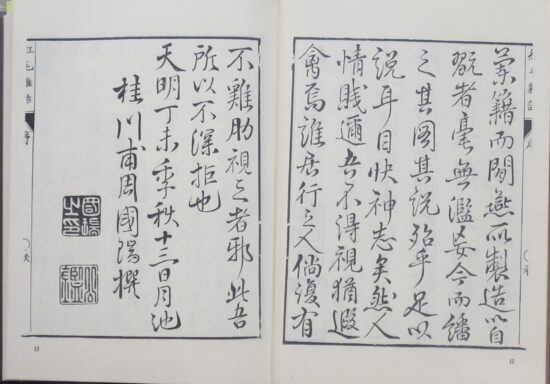 籍而閒燕所製造以自
翫者毫無濫妄今而繙
之其圖其説殆乎足以
説耳目快神志矣然人
情賤邇吾不得視猶遐
禽焉誰居行之人倘復有
12
不雞肋視之者邪此吾
所以不深拒也
天明丁未季秋十三日月池
桂川甫周國瑞撰
國瑞之印
紅毛雜話
序